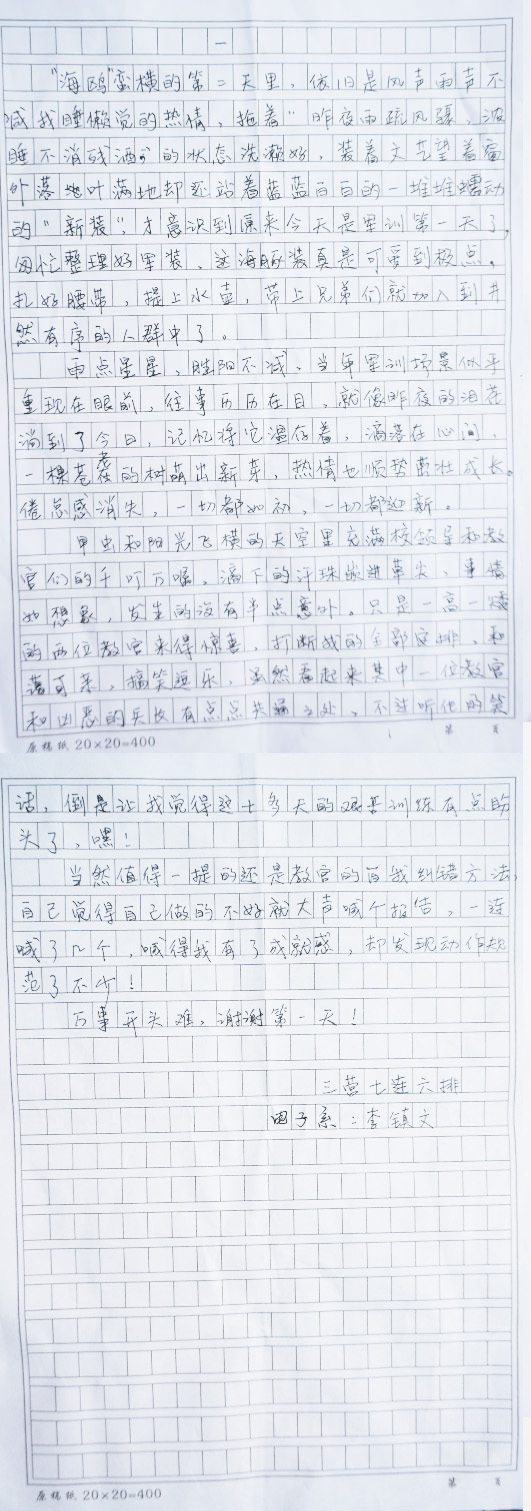 一
"海鸥"蛮横的第二天里，依旧是风声雨声不
减我睡懒觉的热情，拖着"昨夜雨疏风骤，浓
睡不消残酒"的状态洗漱好，装着文艺望着窗
外落地叶满地却还站着蓝蓝白白的一堆堆蠕动
的"新装"，才意识到原来今天是军训第一天了，
匆忙整理好军装、这海豚装真是可爱到极点。
扎好腰带，提上水壶，带上兄弟们就加入到井
然有序的人群中了。
雨点星星，骄阳不减、当年军训场景似乎
重现在眼前，往事历历在目，就像昨夜的泪花
淌到了今日，记忆将它温存着，滴落在心间、
一棵苍老在的树萌出新芽，热情也顺势茁壮成长。
倦怠感消失，一切都如初，一切都迎新。
甲虫和阳光飞横的天空里充满校领导和教
官们的千叮万嘱、滴下的汗珠嵌进草尖、事情
如想象，发生的没有半点意外。只是一高一矮
的两位教官来得惊喜，打断我的全部安排、和
蔼可亲，搞笑逗乐、虽然看起来其中一位教官
和凶恶的兵牧有点点共通之处，不过听他的笑
原稿纸 20×20=400
第 页
话，倒是让我觉得这十多天的艰苦训练有点盼
头了，嘿！
当然值得一提的还是教官的自我纠错方法，
自己觉得自己做的不好就大声喊个报告，一连
喊了几个，喊得我有了成就感，却发现动作规
范了不少！
万事开头难，谢谢第一天！
三营七连六排
电子系：李镇文
原稿纸 20×20=400
第 页